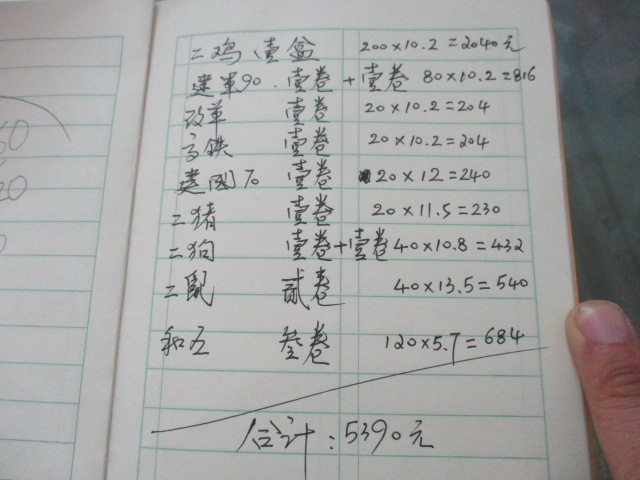 二鸡 壹盆 200×10.2=2040元
建军90 . 壹卷+壹卷 80×10.2=816
改革 壹卷 20×10.2=204
高铁 壹卷 20×10.2=204
建國70 壹卷 20×12=240
二猪 壹卷 20×11.5=230
二狗 壹卷+壹卷 40×10.8=432
二鼠 贰卷 40×13.5=540
和五 叁卷 120×5.7=684
合计:5390元